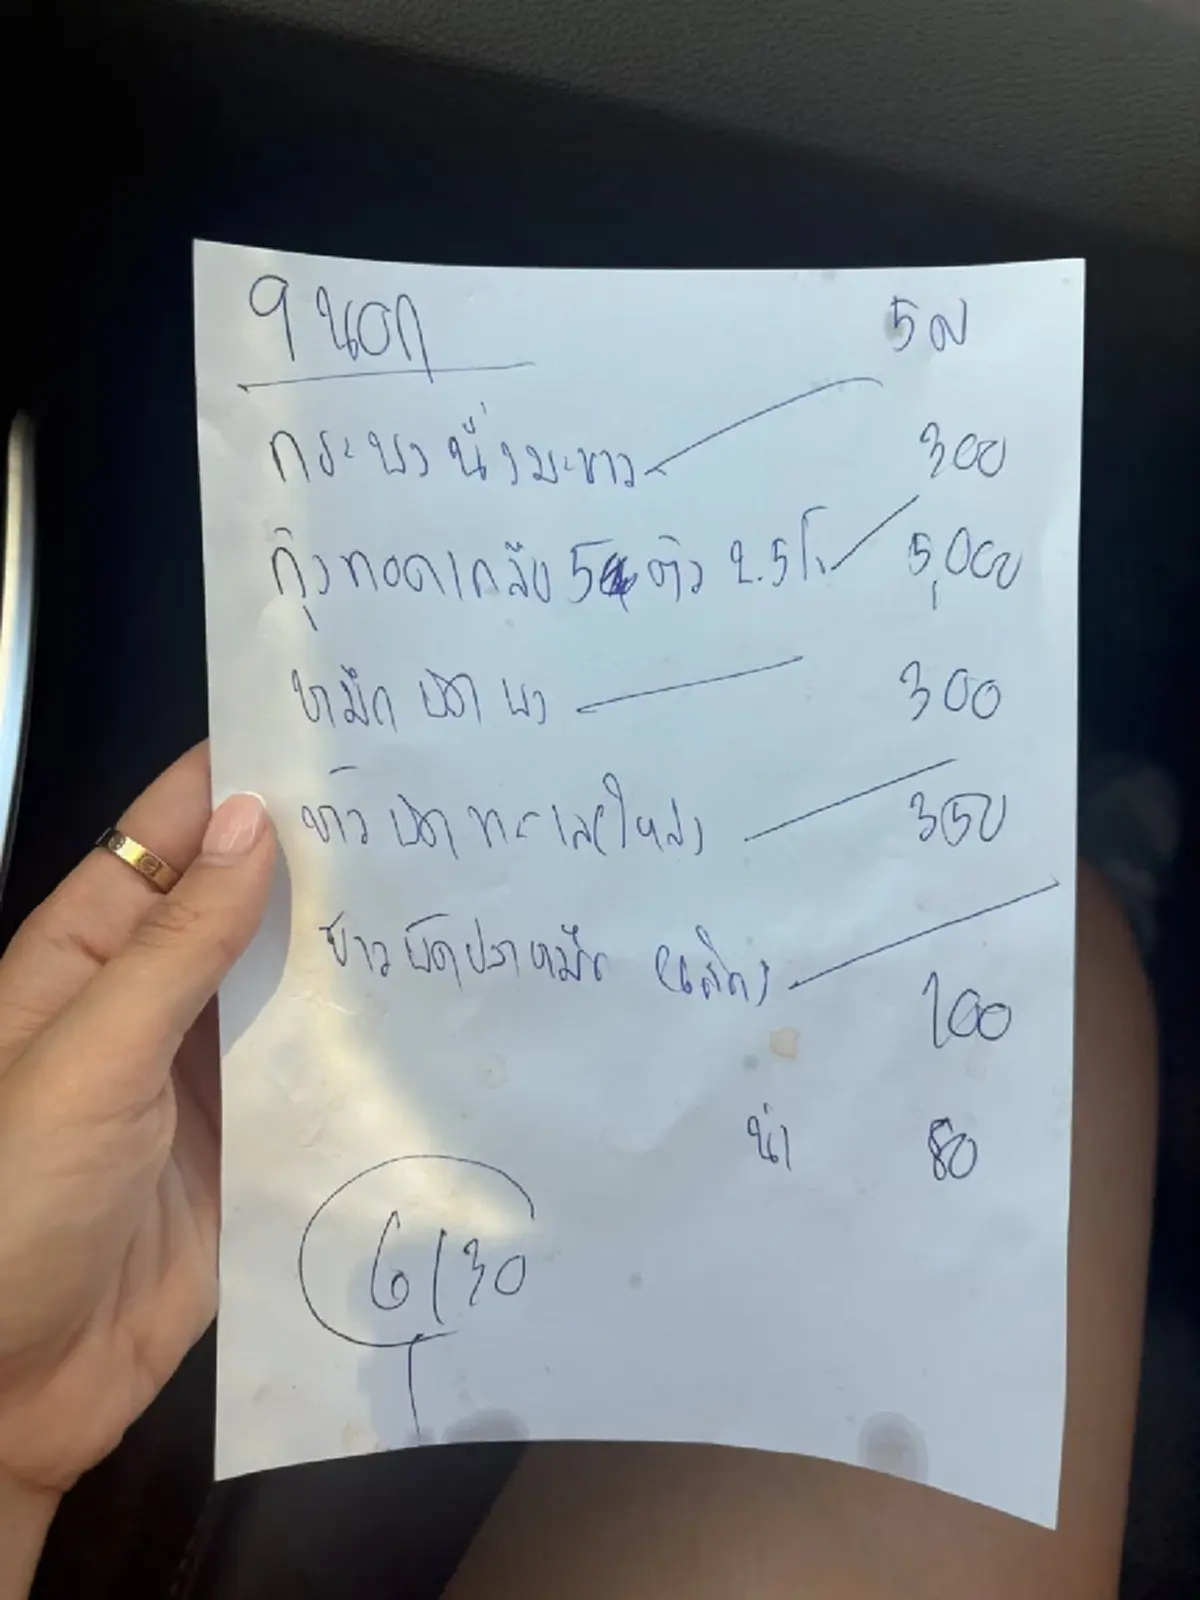 9 นอก 5 ผ
กระพง นึ่งมะนาว 300
กุ้งทอดเกลือ 5 ตัว 2.5 โล 5,000
หมึก ผัด ผง 300
ข้าวผัด ทะเล (ใหญ่) 350
ข้าวผัดปลาหมึก (เล็ก) 100
น้ำ 80
6130